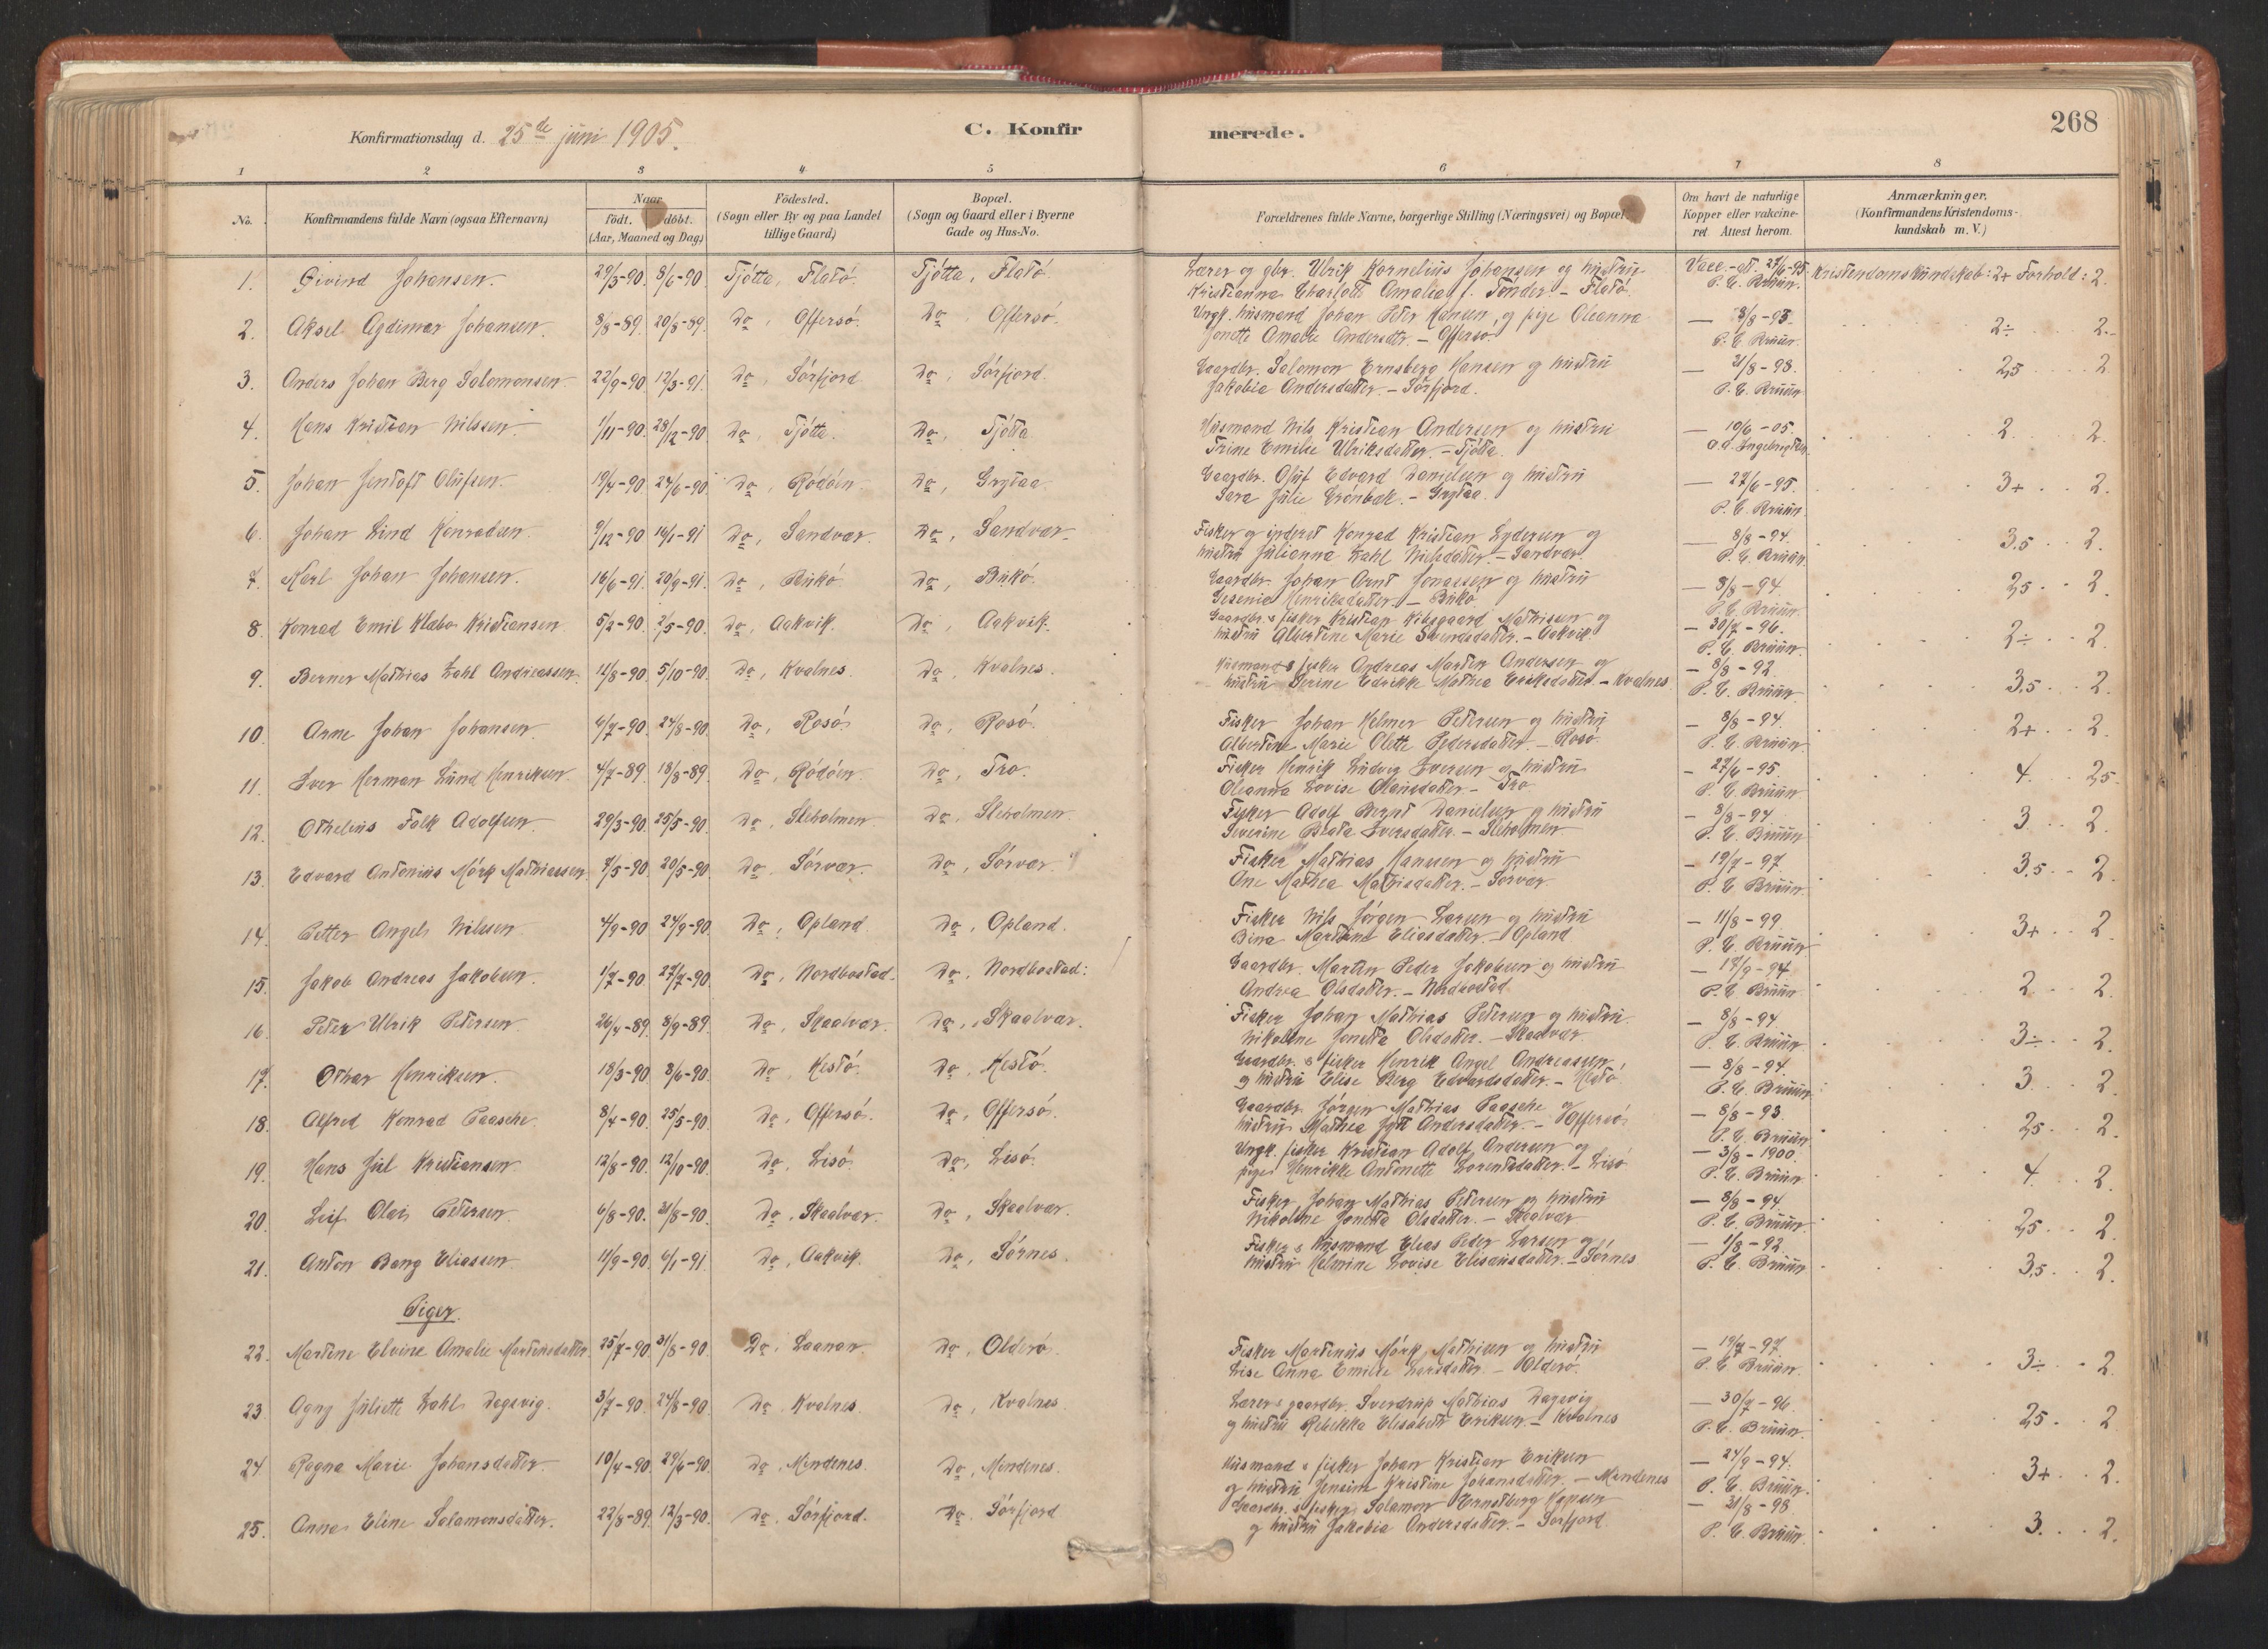 268
Konfirmationsdag d. 25de juni 1905.
C. Konfirmerede.
1 2 3 4 5 6 7 8
No.
Konfirmandens fulde Navn (ogsaa Efternavn)
Naar
födt. döbt.
(Aar, Maaned og Dag.)
Födested.
(Sogn eller By og paa Landet
tillige Gaard)
Bopæl.
(Sogn og Gaard eller i Byerne
Gade og Hus-No.
Forældrenes fulde Navne, borgerlige Stilling (Næringsvei) og Bopæl.
Om havt de naturlige
Kopper eller vakcine-
ret. Attest herom.
Anmærkninger.
(Konfirmandens Kristendoms-
kundskab m. V.)
1. Eivind Johansen. 29/3-90. 8/6-90 Tjötta, Flatö. Tjötta, Flatö. Lærer og gbr. Ulrik Kornelius Johansen og hustru Vacc.-att. 27/6-95. Kristendomskundskab: 2+ Forhold: 2.
Kristianna Charlotte Amalia f. Tönder. - Flatö. P. E. Bruun.
2. Aksel Agdimar Johansen. 3/8-89. 20/8-89. Do, Offersö. Do, Offersö. Ungk. husmand Johan Peter Hansen og pige Oleanna — 8/8-93. 2÷ 2.
Jonette Amalie Andersdtr. - Offersö. P. E. Bruun.
3. Anders Johan Berg Salomonsen 22/9-90 12/3-91. Do, Sörfjord Do, Sörfjord. Gaardbr. Salomon Ernsberg Hansen og hustru — 31/8-98. 2,5 2
Jakobia Andersdatter. - Sörfjord. P. E. Bruun
4. Hans Kristian Nilssen. 1/11-90. 28/12-90 Do, Tjötta. Do, Tjötta Husmand Nils Kristian Andersen og hustru — 10/6-05. 2. 2.
Trine Emilie Ulriksdatter. - Tjötta. O. A. Ingebrigtsen
5. Johan Jentoft Olufsen. 19/4-90 24/6-90 Do, Rödöen. Do, Grytaa. Gaardbr. Oluf Edvard Danielsen og hustru — 27/6-95. 3+ 2.
Sara Julie Grönbæk. - Grytaa. P. E. Bruun.
6. Johan Lind Konradsen. 9/12-90 14/1-91 Do, Sandvær. Do, Sandvær. Fisker og inderst Konrad Kristian Lydersen og — 8/8-94. 3,5 2.
hustru Julianna Zahl Nielsdatter. - Sandvær P. E. Bruun.
7. Karl Johan Johansen. 16/6-91. 20/9-91. Do, Bukö Do, Bukö. Gaardbr. Johan Arnt Jonassen og hustru — 8/8-94. 2,5 2
Gesenia Henriksdatter. - Bukö. P. E. Bruun
8. Konrad Emil Klæbo Kristiansen. 5/2-90. 2/5-90. Do, Aakvik. Do, Aakvik. Gaardbr. & fisker Kristian Kibsgaard Mathisen og — 30/7-96. 2÷ 2.
hustru Albertine Marie Svendsdatter. - Aakvik P. E. Bruun.
9. Berner Mathias Zahl Andreassen. 11/8-90. 5/10-90. Do, Kvalnes. Do, Kvalnes. Husmand & fisker Andreas Martin Andersen og — 8/8-92. 3,5 2.
hustru Serine Edrikke Mathea Eriksdatter. - Kvalnes P. E. Bruun
10. Arne Johan Johansen. 6/7-90. 24/8-90. Do, Rosö. Do, Rosö. Fisker Johan Helmer Petersen og hustru — 8/8-94. 2+ 2.
Albertine Marie Olette Pedersdatter. - Rosö. P. E. Bruun
11. Iver Herman Lund Henriksen. 4/7-89. 18/8-89. Do, Rödöen. Do, Tro. Fisker Henrik Ludvig Iversen og hustru — 27/6-95. 4. 2,5.
Oleanna Lovise Olausdatter. - Tro P. E. Bruun
12. Othelius Falk Adolfsen. 29/3-90. 25/5-90. Do, Sleholmen. Do, Sleholmen. Fisker Adolf Bernt Danielsen og hustru — 8/8-94. 3 2.
Severine Beata Iversdatter. - Sleholmen P. E. Bruun
13. Edvard Antonius Mörk Mathiassen 7/5-90 20/5-90 Do, Sörvær. Do, Sörvær. Fisker Mathias Hansen og hustru — 19/7-97. 3,5 2.
Ane Mathea Mathisdatter. - Sörvær. P. E. Bruun.
14. Petter Angel Nilssen. 4/9-90 24/9-90. Do, Opland. Do, Opland. Fisker Nils Jörgen Larsen og hustru — 11/8-99. 3+ 2.
Bina Martine Eliasdatter. - Opland P. E. Bruun.
15. Jakob Andreas Jakobsen. 1/7-90. 27/7-90. Do, Nordbostad. Do, Nordbostad. Gaardbr. Martin Peder Jakobsen og hustru — 17/9-94 2 2.
Andrea Olsdatter. - Nordbostad. P. E. Bruun
16. Peter Ulrik Petersen. 26/4-89. 8/9-89. Do, Skaalvær. Do, Skaalvær. Fisker Johan Mathias Petersen og hustru — 8/8-94. 3÷ 2.
Nikoline Jonetta Olsdatter. - Skaalvær. P. E. Bruun
17. Othar Henriksen. 18/3-90. 8/6-90. Do, Hestö. Do, Hestö. Gaardbr. & fisker Henrik Angel Andreassen — 8/8-94. 3 2
og hustru Elise Berg Edvardsdatter. - Hestö P. E. Bruun
18. Alfred Konrad Paasche 8/4-90. 25/5-90. Do, Offersö. Do, Offersö. Gaardbr. Jörgen Mathias Paasche og — 8/8-93 2,5 2.
hustru Mathea Jytt Andersdatter. - Offersö P. E. Bruun
19. Hans Jul Kristiansen. 12/8-90. 12/10-90. Do, Lisö. Do, Lisö. Ungk. fisker Kristian Adolf Andersen og — 3/8-1900. 4. 2.
pige Henrikke Antonette Lorentsdatter. - Lisö P. E. Bruun
20. Leif Olais Petersen. 6/8-90. 31/8-90. Do, Skaalvær. Do, Skaalvær. Fisker Johan Mathias Petersen og hustru — 8/8-94. 2,5 2.
Nikoline Jonetta Olsdatter. - Skaalvær P. E. Bruun
21. Anton Bang Eliassen. 11/9-90 6/1-91. Do, Aakvik. Do, Sörnes. Fisker & husmand Elias Peder Larsen og — 1/8-92. 3,5 2.
hustru Helmine Lovise Elisæusdatter. - Sörnes P. E. Bruun
Piger.
22. Martine Elvine Amalie Martinusdatter. 25/7-90 31/8-90. Do, Laanan. Do, Olderö. Fisker Martinus Mörk Mathisen og hustru — 19/7-97. 3÷ 2
Lise Anna Emilie Larsdatter. - Olderö. P. E. Bruun.
23. Agny Juliette Zahl Dagsvig. 3/7-90. 24/8-90. Do, Kvalnes. Do, Kvalnes. Lærer & gaardbr. Sverdrup Mathias Dagsvig — 30/7-96. 2,5 2
og hustru Rebekka Elisabeth Eriksen - Kvalnes P. E. Bruun.
24. Ragna Marie Johansdatter. 10/4-90. 29/6-90. Do, Mindenes. Do, Mindenes. Husmand & fisker Johan Kristian Eriksen — 24/9-94. 3+ 2.
og hustru Jensine Kristine Johansdatter. - Mindenes P. E. Bruun.
25. Anna Eline Salamonsdatter. 22/8-89. 12/3-90. Do, Sörfjord. Do, Sörfjord Gaardbr. & fisker Salamon Ernstberg Hansen — 31/8-98. 3. 2.
og hustru Jakobia Andersdatter. - Sörfjord P. E. Bruun